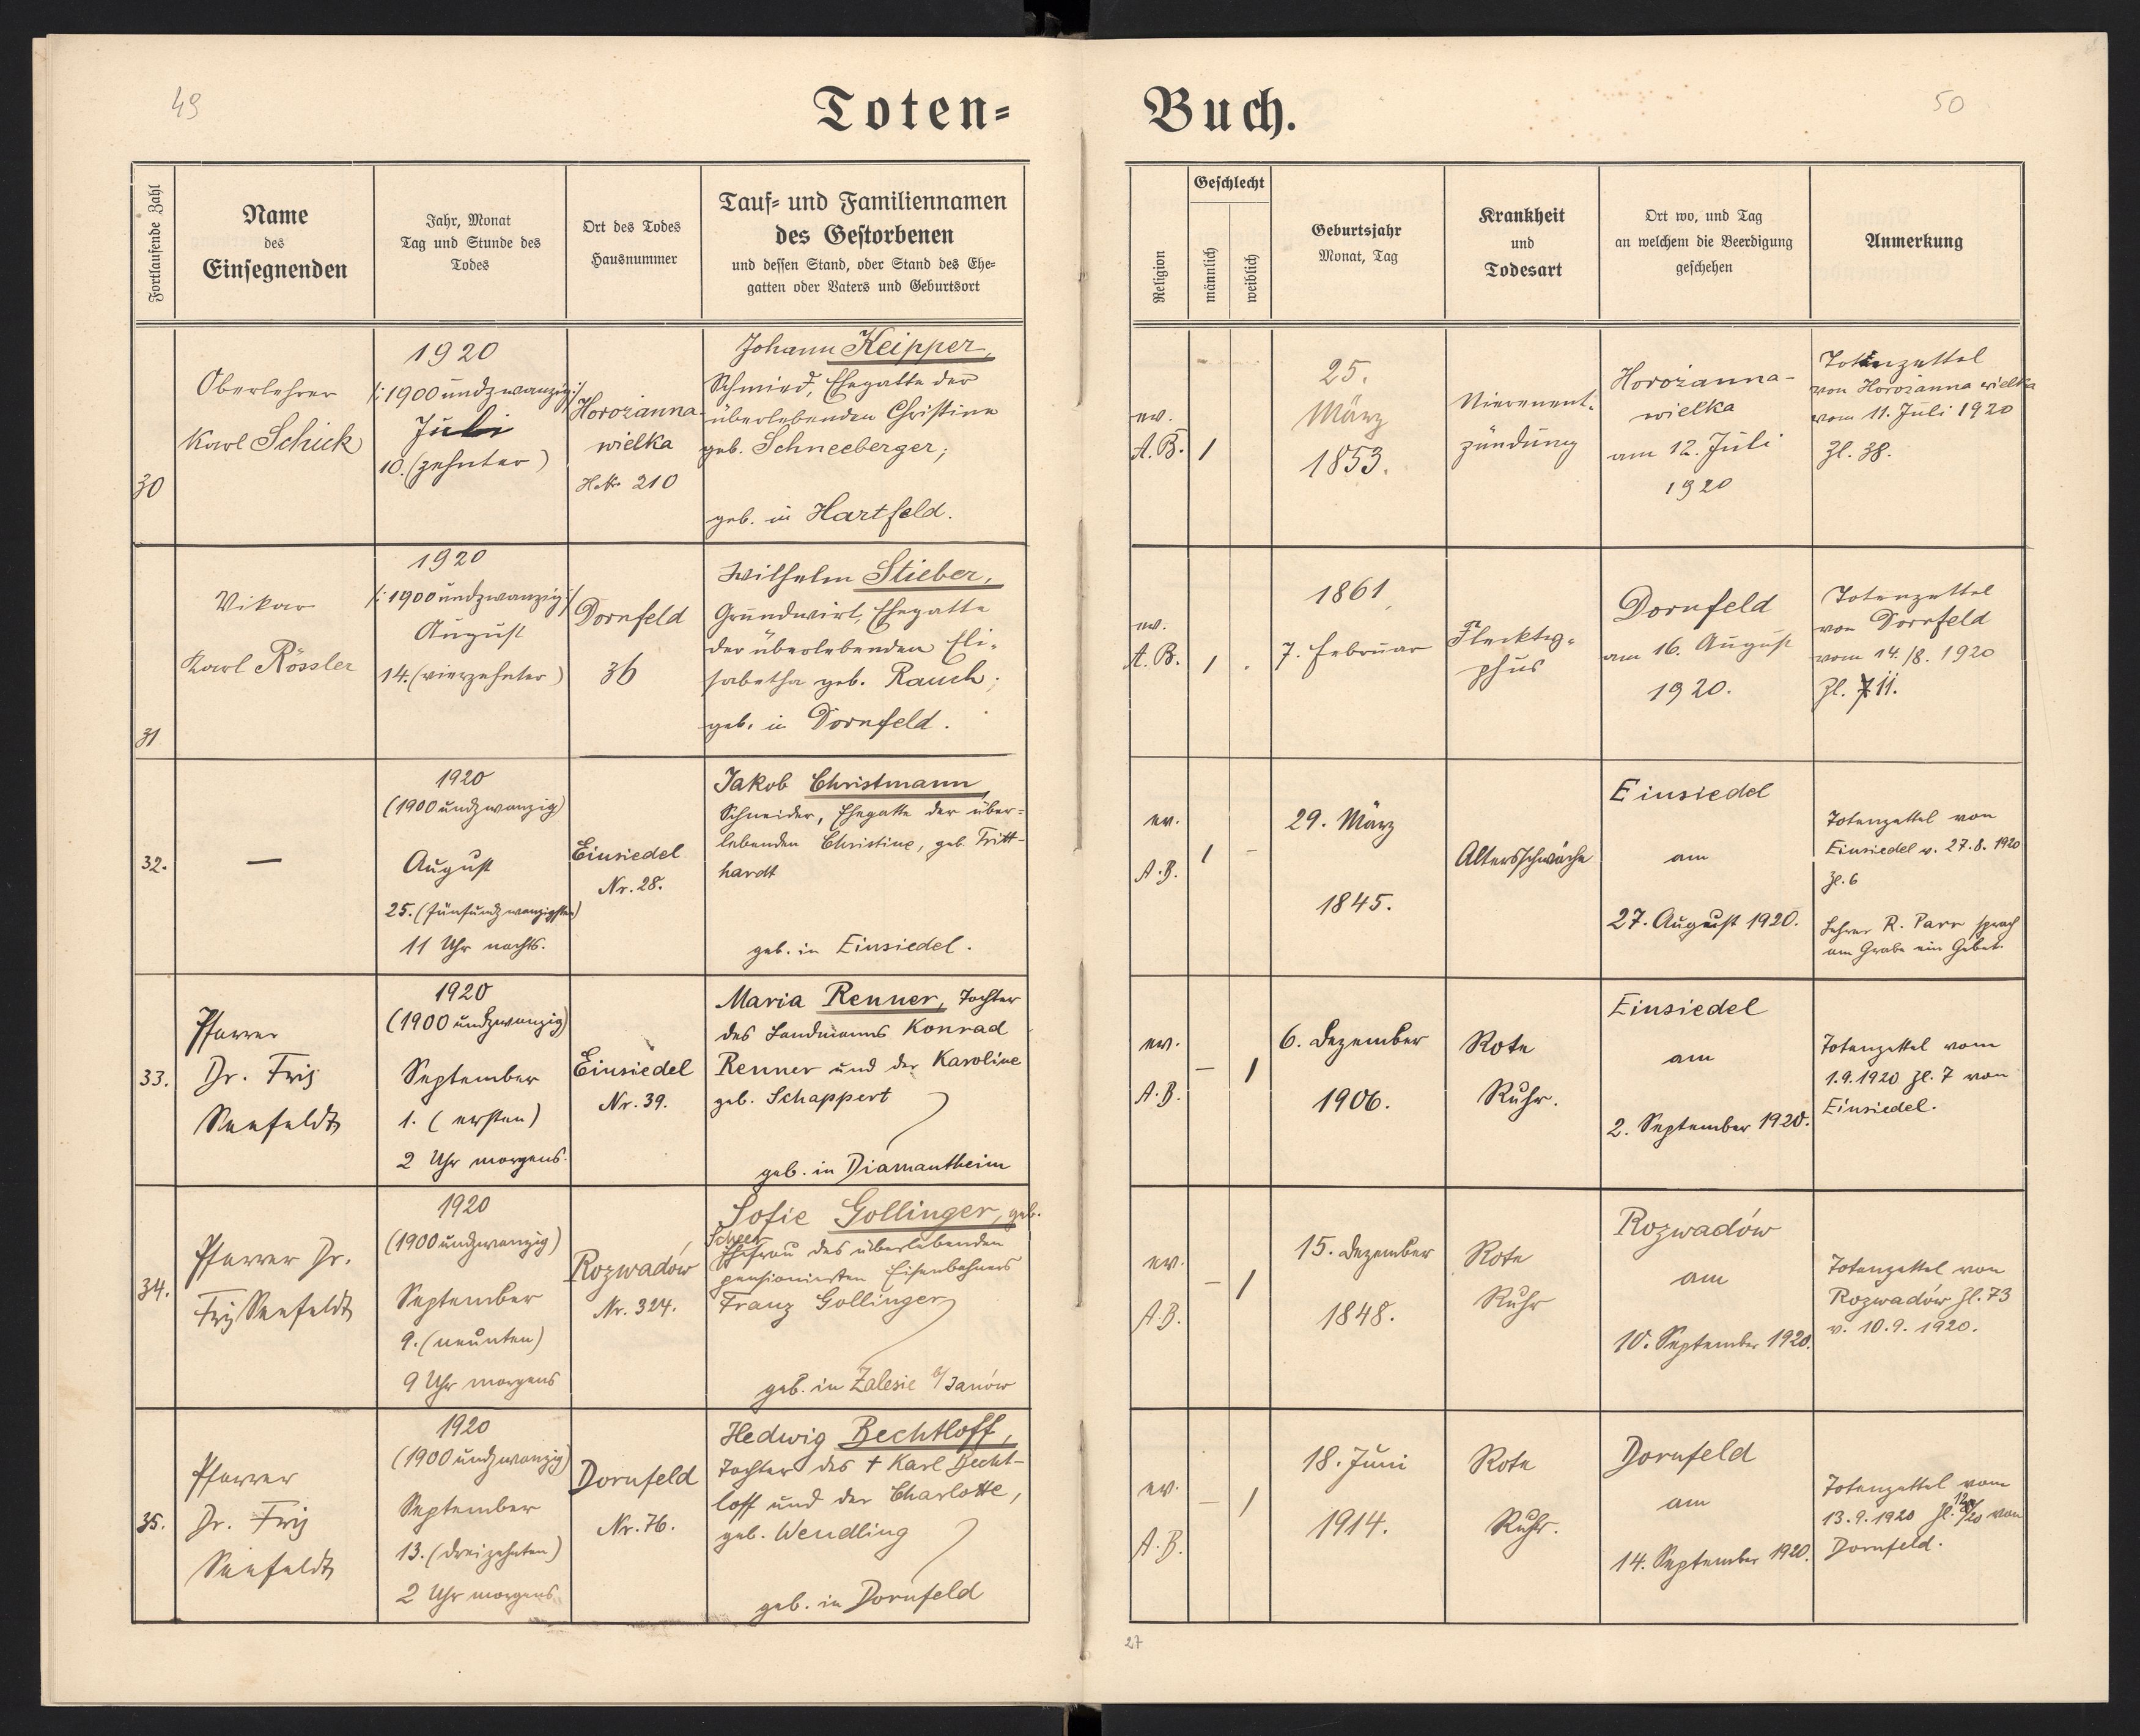 49
Toten-
Buch.
50
Fortlaufende Zahl
Name
des
Einsegnenden
Jahr, Monat
Tag und Stunde des
Todes
Ort des Todes
Hausnummer
Tauf- und Familiennamen
des Gestorbenen
und dessen Stand, oder Stand des Ehe-
gatten oder Vaters und Geburtsort
Religion
Geschlecht
männlich
weiblich
Geburtsjahr
Monat, Tag
Krankheit
und
Todesart
Ort wo, und Tag
an welchem die Beerdigung
geschehen
Anmerkung
30
Oberlehrer
Karl Schick
1920
/:1900 undzwanzig:/
Juli
10. (zehnter)
Horożanna-
wielka
HNr 210
Johann Keipper,
Schmied, Ehegatte der
überlebenden Christine
geb. Schneeberger;
geb. in Hartfeld.
ev.
A. B.
1
25.
März
1853.
Nierenent-
zündung
Horożanna-
wielka
am 12. Juli
1920
Totenzettel
von Horożanna wielka
vom 11. Juli 1920
Zl. 38.
31
Vikar
Karl Rössler
1920
/:1900 undzwanzig:/
August
14. (vierzehnter)
Dornfeld
36
Wilhelm Stieber,
Grundwirt, Ehegatte
der überlebenden Eli-
sabetha geb. Rauch;
geb. in Dornfeld.
ev.
A. B.
1 .
1861
7. Februar
Fleckty-
phus
Dornfeld
am 16. August
1920.
Totenzettel
von Dornfeld
vom 14./8. 1920
Zl. 11.
32.
—
1920
(1900 undzwanzig)
August
25. (fünfundzwanzigsten)
11 Uhr nachts.
Einsiedel
Nr. 28.
Jakob Christmann,
Schneider, Ehegatte der über-
lebenden Christine, geb. Tritt-
hardt
geb. in Einsiedel.
ev.
A. B.
1 –
29. März
1845.
Altersschwäche
Einsiedel
am
27. August 1920.
Totenzettel von
Einsiedel v. 27.8. 1920
Zl. 6
Lehrer R. Parr sprach
am Grabe ein Gebet.
33.
Pfarrer
Dr. Fritz
Seefeldt
1920
(1900 undzwanzig)
September
1. (ersten)
2 Uhr morgens.
Einsiedel
Nr. 39.
Maria Renner, Tochter
des Landmanns Konrad
Renner und der Karoline
geb. Schappert
geb. in Diamantheim
ev.
A. B.
– 1
6. Dezember
1906.
Rote
Ruhr.
Einsiedel
am
2. September 1920.
Totenzettel vom
1.9.1920 Zl. 7 von
Einsiedel.
34.
Pfarrer Dr.
Fritz Seefeldt
1920
(1900 undzwanzig)
September
9. (neunten)
9 Uhr morgens
Rozwadów
Nr. 324.
Sofie Gollinger, geb.
Scheer
Ehefrau des überlebenden
pensionierten Eisenbahners
Franz Gollinger
geb. in Zalesie b/Janów
ev.
A. B.
– 1
15. Dezember
1848.
Rote
Ruhr
Rozwadów
am
10. September 1920.
Totenzettel von
Rozwadów Zl. 73
v. 10.9. 1920.
35.
Pfarrer
Dr. Fritz
Seefeldt
1920
(1900 undzwanzig)
September
13. (dreizehnten)
2 Uhr morgens
Dornfeld
Nr. 76.
Hedwig Bechtloff,
Tochter des + Karl Becht-
loff und der Charlotte,
geb. Wendling
geb. in Dornfeld
ev.
A. B.
– 1
18. Juni
1914.
Rote
Ruhr.
Dornfeld
am
14. September 1920.
Totenzettel vom
13.9.1920 Zl. /20 von
Dornfeld.
27